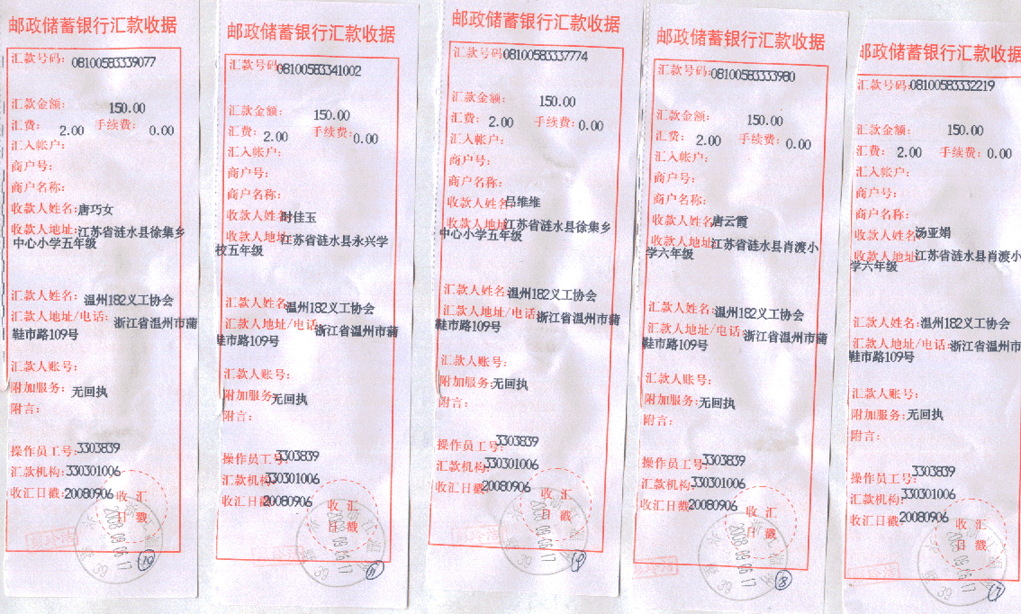 邮政储蓄银行汇款收据
汇款号码: 08100583339077
汇款金额: 150.00
汇费: 2.00 手续费: 0.00
汇入帐户:
商户号:
商户名称:
收款人姓名: 唐巧女
收款人地址: 江苏省涟水县徐集乡
中心小学五年级
汇款人姓名: 温州182义工协会
汇款人地址/电话: 浙江省温州市蒲
鞋市路109号
汇款人账号:
附加服务: 无回执
附言:
操作员工号: 3303839
汇款机构: 330301006
收汇日戳: 20080906
收汇
日戳
2008.09.06.17
39
邮政储蓄银行汇款收据
汇款号码 08100583341002
汇款金额: 150.00
汇费: 2.00 手续费: 0.00
汇入帐户:
商户号:
商户名称:
收款人姓名 时佳玉
收款人地址 江苏省涟水县永兴学
校五年级
汇款人姓名 温州182义工协会
汇款人地址/电话 浙江省温州市蒲
鞋市路109号
汇款人账号:
附加服务: 无回执
附言:
操作员工号: 3303839
汇款机构 330301006
收汇日戳 20080906
收汇
日戳
2008.09.06.17
39
邮政储蓄银行汇款收据
汇款号码 08100583337774
汇款金额: 150.00
汇费: 2.00 手续费: 0.00
汇入帐户:
商户号:
商户名称:
收款人姓名 吕维维
收款人地址 江苏省涟水县徐集乡
中心小学五年级
汇款人姓名: 温州182义工协会
汇款人地址/电话: 浙江省温州市蒲
鞋市路109号
汇款人账号:
附加服务: 无回执
附言:
操作员工号: 3303839
汇款机构: 330301006
收汇日戳: 20080906
收汇
日戳
2008.09.06.17
39
邮政储蓄银行汇款收据
汇款号码: 08100583333980
汇款金额: 150.00
汇费: 2.00 手续费: 0.00
汇入帐户:
商户号:
商户名称:
收款人姓名 唐云霞
收款人地址 江苏省涟水县肖渡小
学六年级
汇款人姓名: 温州182义工协会
汇款人地址/电话 浙江省温州市蒲
鞋市路109号
汇款人账号:
附加服务: 无回执
附言:
操作员工号 3303839
汇款机构: 330301006
收汇日戳 20080906
收汇
日戳
2008.09.06.17
39
⑧
邮政储蓄银行汇款收据
汇款号码: 08100583332219
汇款金额: 150.00
汇费: 2.00 手续费: 0.00
汇入帐户:
商户号:
商户名称:
收款人姓名 汤亚娟
收款人地址 江苏省涟水县肖渡小
学六年级
汇款人姓名: 温州182义工协会
汇款人地址/电话: 浙江省温州市
鞋市路109号
汇款人账号:
附加服务: 无回执
附言:
操作员工号: 3303839
汇款机构: 330301006
收汇日戳: 20080906
收汇
日戳
2008.09.06.17
39
⑦